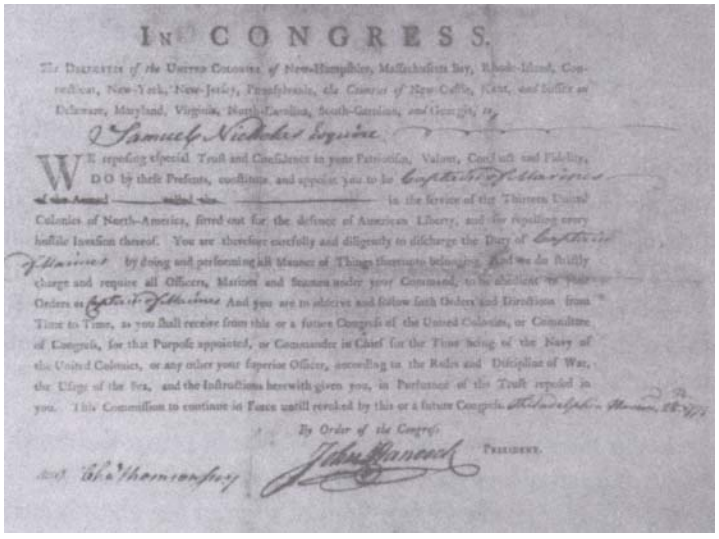 IN CONGRESS.
The DELEGATES of the UNITED COLONIES of New-Hampshire, Massachusetts Bay, Rhode-Island, Con-
necticut, New-York, New-Jersey, Pennsylvania, the Counties of New-Castle, Kent, and Sussex on
Delaware, Maryland, Virginia, North-Carolina, South-Carolina, and Georgia, to
Samuel Nicholas Esquire
WE reposing especial Trust and Confidence in your Patriotism, Valour, Conduct and Fidelity,
DO by these Presents, constitute and appoint you to be Captain of Marines
of the Armed called the in the service of the Thirteen United
Colonies of North-America, fitted out for the defence of American Liberty, and for repelling every
hostile Invasion thereof. You are therefore carefully and diligently to discharge the Duty of Captain
of Marines by doing and performing all Manner of Things thereunto belonging. And we do strictly
charge and require all Officers, Marines and Seamen under your Command, to be obedient to your
Orders as Captain of Marines And you are to observe and follow such Orders and Directions from
Time to Time, as you shall receive from this or a future Congress of the United Colonies, or Committee
of Congress, for that Purpose appointed, or Commander in Chief for the Time being of the Navy of
the United Colonies, or any other your superior Officer, according to the Rules and Discipline of War,
the Usage of the Sea, and the Instructions herewith given you, in Pursuance of the Trust reposed in
you. This Commission to continue in Force untill revoked by this or a future Congress. Philadelphia Novem. 28th 1775
By Order of the Congress
John Hancock PRESIDENT.
Attest Cha Thomson secy